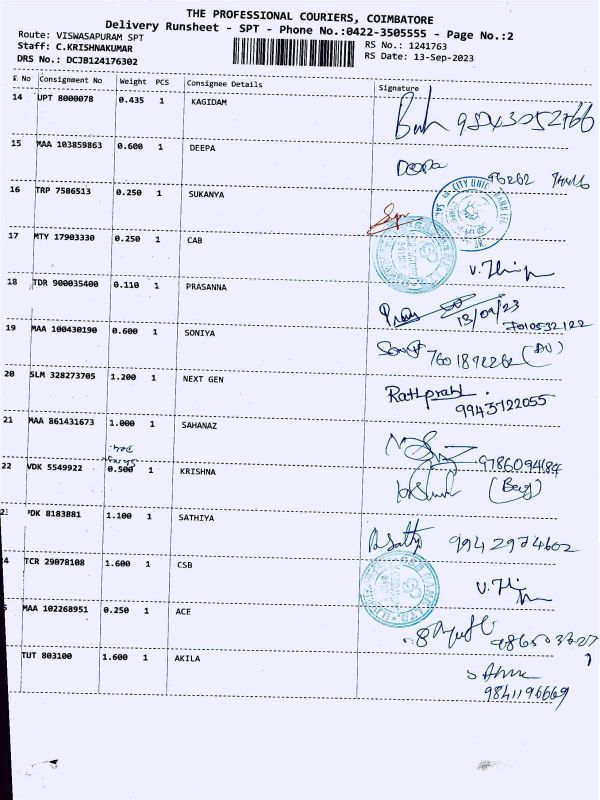 THE PROFESSIONAL COURIERS, COIMBATORE
Delivery Runsheet - SPT - Phone No.:0422-3505555 - Page No.:2
Route: VISWASAPURAM SPT
RS No.: 1241763
Staff: C.KRISHNAKUMAR
RS Date: 13-Sep-2023
DRS No.: DCJB124176302
No Consignment No Weight PCS Consignee Details Signature
14 UPT 8000078 0.435 1 KAGIDAM
15 MAA 103859863 0.600 1 DEEPA Deepa
16 TRP 7586513 0.250 1 SUKANYA
CITY UNION BANK
17 MTY 17903330 0.250 1 CAB
18 TDR 900035400 0.110 1 PRASANNA 13/09/23
7010532122
19 MAA 100430190 0.600 1 SONIYA
20 SLM 328273705 1.200 1 NEXT GEN
9943122055
21 MAA 861431673 1.000 1 SAHANAZ 9786094684
22 VDK 5549922 0.500 1 KRISHNA
PDK 8183881 1.100 1 SATHIYA 9942974602
TCR 29078108 1.600 1 CSB
MAA 102268951 0.250 1 ACE
TUT 803100 1.600 1 AKILA
9841196669